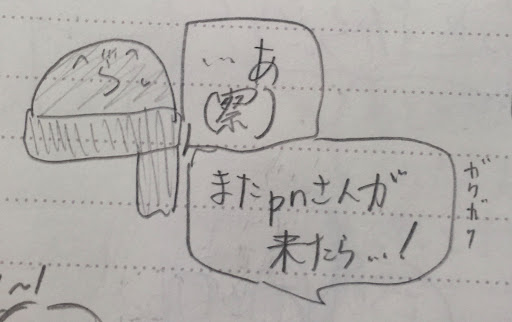 …あ
(察)
またpnさんが
来たら…!
ガクガク